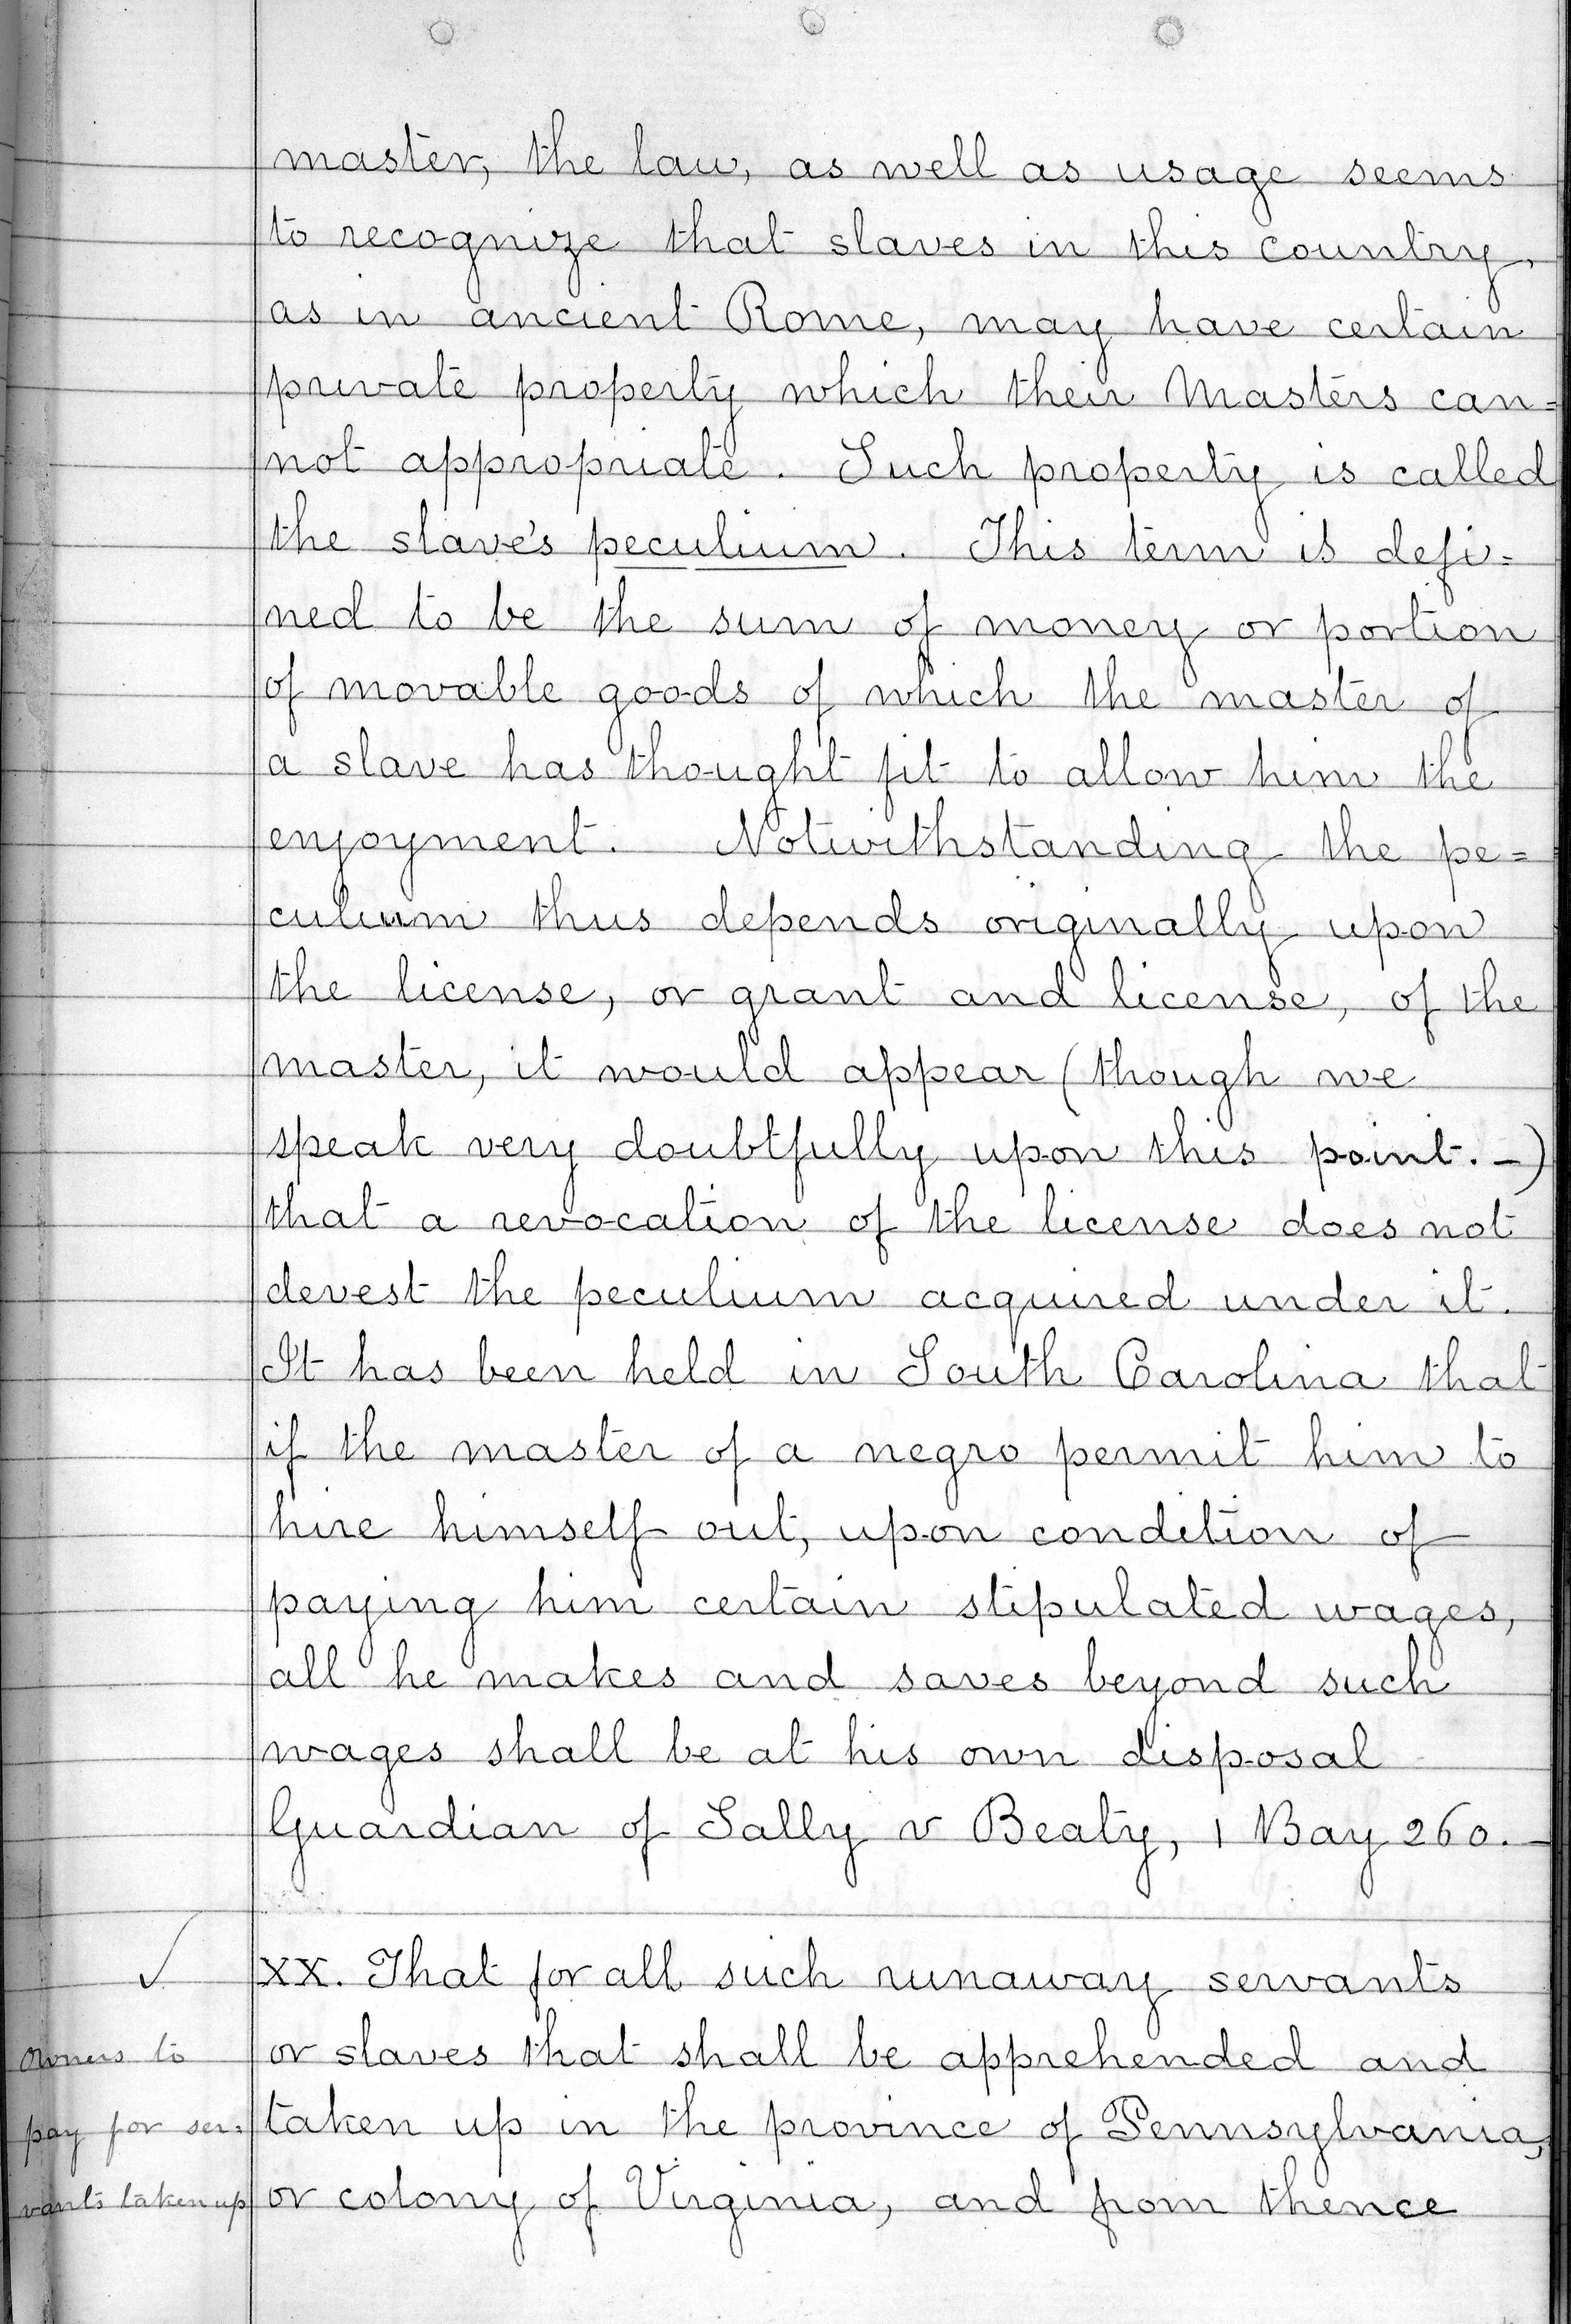 master, the law, as well as usage seems
to recognize that slaves in this country,
as in ancient Rome, may have certain
private property which their Masters can=
not appropriate. Such property is called
the slave's peculium. This term is defi=
ned to be the sum of money or portion
of movable goods of which the master of
a slave has thought fit to allow him the
enjoyment. Notwithstanding the pe=
culium thus depends originally upon
the license, or grant and license, of the
master, it would appear (though we
speak very doubtfully upon this point.-)
that a revocation of the license does not
devest the peculium acquired under it.
It has been held in South Carolina that
if the master of a negro permit him to
hire himself out, upon condition of
paying him certain stipulated wages,
all he makes and saves beyond such
wages shall be at his own disposal
Guardian of Sally v Beaty, 1 Bay 260.-
✓ XX. That for all such runaway servants
or slaves that shall be apprehended and
taken up in the province of Pennsylvania,
or colony of Virginia, and from thence
Owners to
pay for ser=
vants taken up